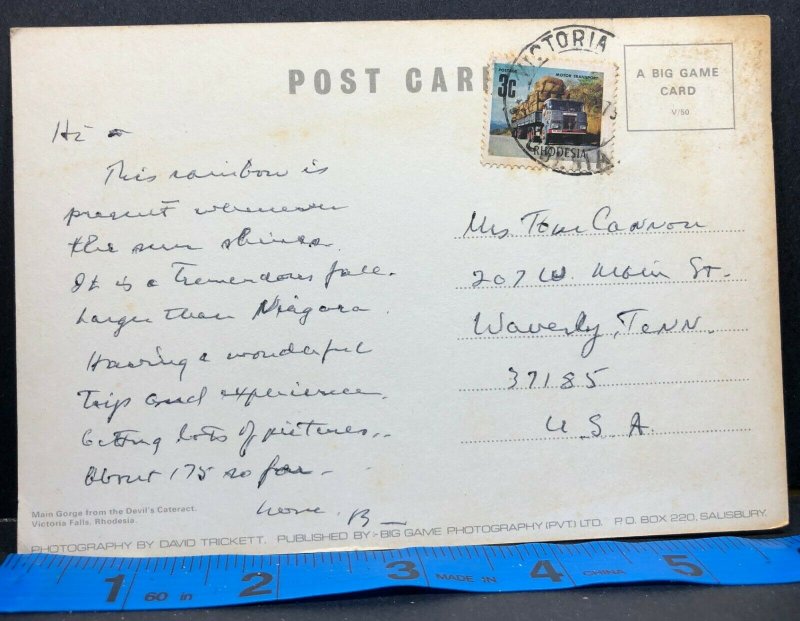 POST CARD
VICTORIA
POSTAGE
MOTOR TRANSPORT
3c
RHODESIA
A BIG GAME
CARD
V/50
Hi
This rainbow is
present whenever
the sun shines.
It is a Tremendous fall.
Larger than Niagara.
Having a wonderful
Trip and experience.
Getting lots of pictures..
About 175 so far.
Love. B
Mrs Tom Cannon
207 W. Main St.
Waverly, Tenn.
37185
U S A.
Main Gorge from the Devil's Cateract.
Victoria Falls, Rhodesia.
PHOTOGRAPHY BY DAVID TRICKETT. PUBLISHED BY:- BIG GAME PHOTOGRAPHY (PVT) LTD. P.O. BOX 220, SALISBURY.
1 60 in 2 3 MADE IN 4 CHINA 5